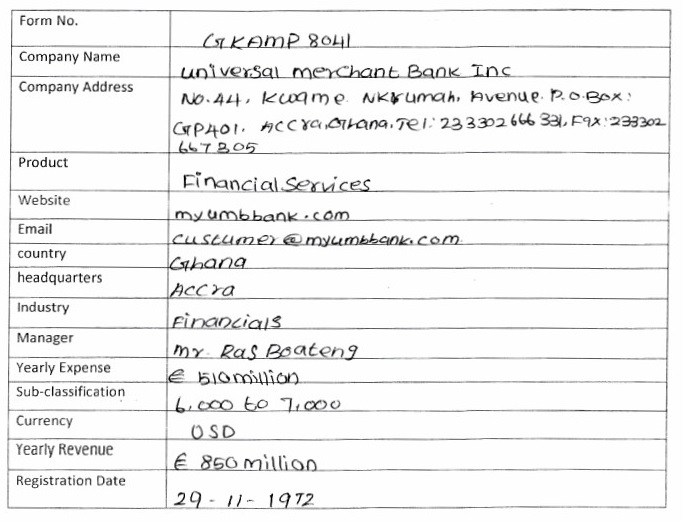 Form No. GKAMP 8041
Company Name universal merchant Bank Inc
Company Address No.44, Kwame Nkrumah, Avenue. P.O.Box:
GP401, Accra,Ghana,Tel:233302666331,Fax:233302
667305
Product Financial Services
Website myumbbank.com
Email custumer@myumbbank.com
country Ghana
headquarters Accra
Industry Financials
Manager Mr. Ras Boateng
Yearly Expense € 510million
Sub-classification 6,000 to 7,000
Currency USD
Yearly Revenue € 850 million
Registration Date 29-11-1972